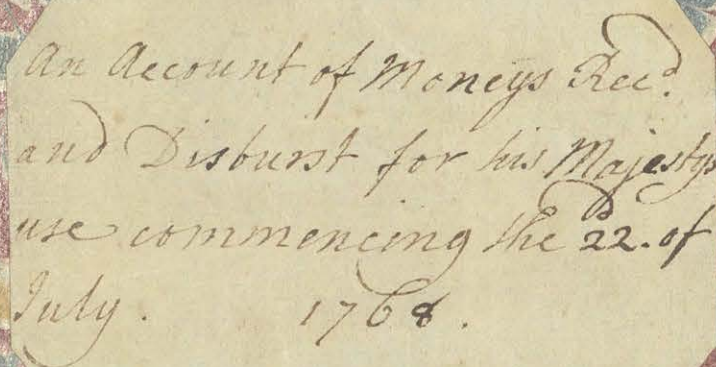 An Account of Moneys Rec.d
and Disburst for his Majestys
use commencing the 22.d of
July. 1768.